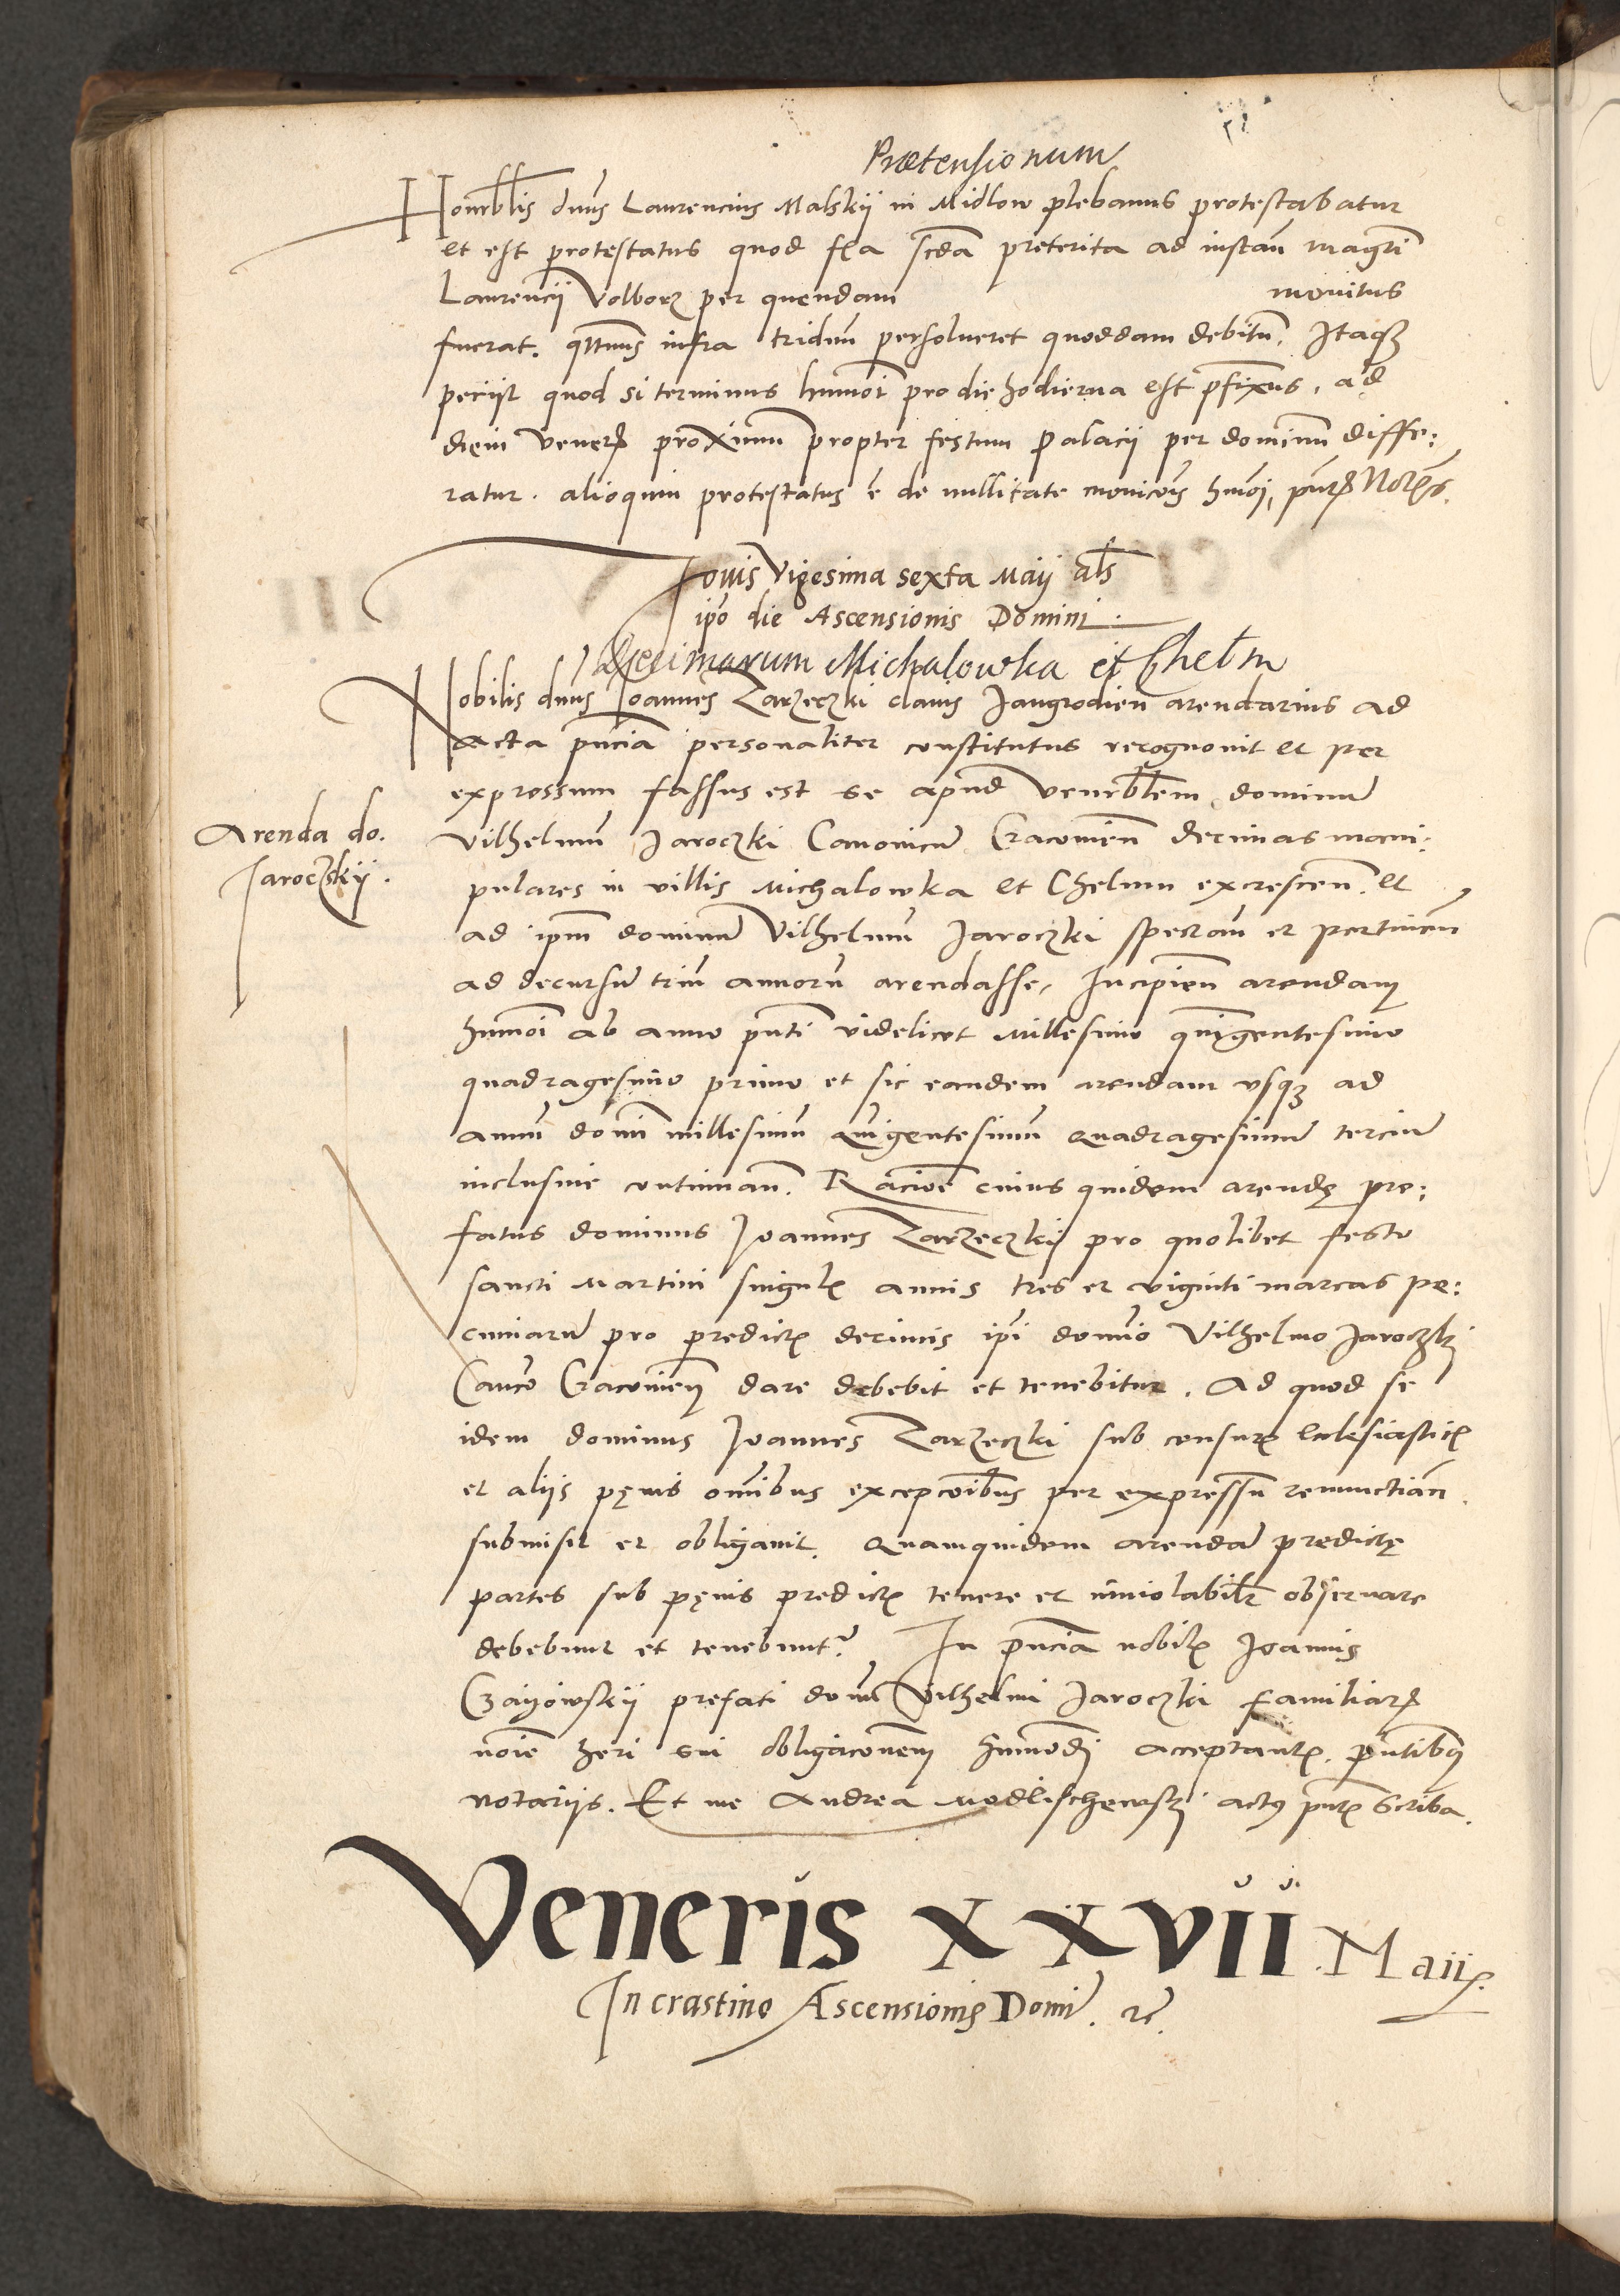 Prætensionum
Honorblis dnus Laurencius Malskij in Midlow plebanus protestabatur
et est protestatus quod fa scda preterita ad instan magri
Laurencij Volborz per quendam monitus
fuerat. qtenus infra triduu persolueret quoddam debitu. Itaqz
petijt quod si terminus humoi pro die hodierna est pfixus, ad
diem Vener proximum propter festum Palacij per dominu diffe:
ratur. alioquin protestatus e de nullitate monicois hmoi, pntz Notrs.
Jouis Vigesima sexta Maij als
ipo die Ascensionis Domini.
Decimarum Michalowka et Chelm
Nobilis dnus Joannes Zarzeczki clauis Jangrodien arendarius ad
acta pncia personaliter constitutus recognouit et per
expressum fassus est se apud venerblem dominu
Arenda do.
Jaroczskij.
Vilhelmu Jaroczki Canonicu Cracouien decimas mani:
pulares in villis Michalowka et Chelmu excrescen. et
ad ipm dominu Vilhelmu Jaroczki spectan et pertinen
ad decursu triu annoru arendasse, Incipien arendam
humoi ab anno pnti videlicet Millesimo quigentesimo
quadragesimo primo et sic eandem arendam vsqz ad
annu domi millesimu Quigentesimum Quadragesimu terciu
inclusiue continuan. Racioe cuius quidem arendę pre:
fatus dominus Joannes Zarzeczkij pro quolibet festo
sancti Martini singul annis tres et viginti marcas pe:
cuniaru pro predict decimis ipi domio Vilhelmo Jaroczki
Canco Cracouien dare debebit et tenebitur. Ad quod se
idem dominus Joannes Zarzeczki sub censur Ecclesiastic
et aliis pęnis omibus excepcoibus per expressu renunctian.
submisit et obligauit. Quamquidem arenda predictę
partes sub pęnis predict tenere et inuiolabilr obseruare
debebunt et tenebunt. In pncia nobil Joannis
Czayowskij prefati domi Vilhelmi Jaroczki familiar
noie heri sui obligaconem humodi acceptant. pntibus
notarijs. Et me Andrea Modlischewski actus pnt Scriba.
Veneris XXVII. Maij.
In crastino Ascensionis Domi. rc.